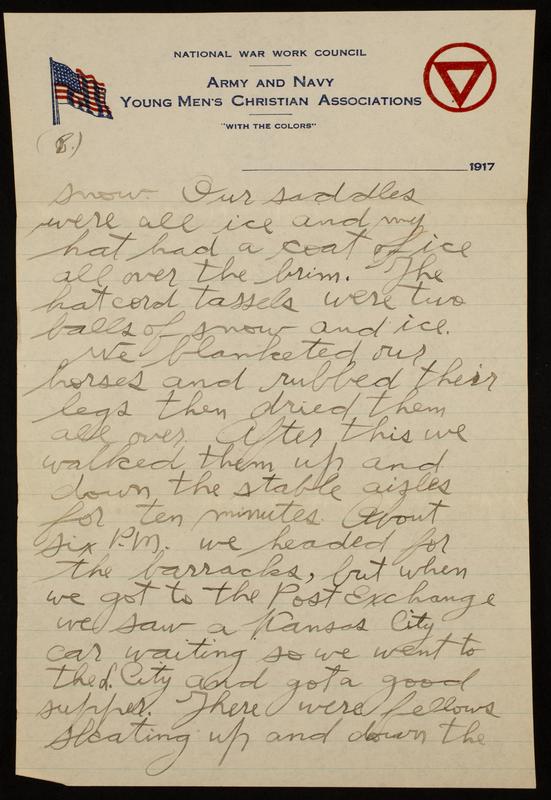 NATIONAL WAR WORK COUNCIL
ARMY AND NAVY
YOUNG MEN'S CHRISTIAN ASSOCIATIONS
"WITH THE COLORS"
(8.)
1917
snow. Our saddles
were all ice and my
hat had a coat of ice
all over the brim. The
hatcord tassels were two
balls of snow and ice.
We blanketed our
horses and rubbed their
legs then dried them
all over. After this we
walked them up and
down the stable aizles
for ten minutes. About
six P.M. we headed for
the barracks, but when
we got to the Post Exchange
we saw a Kansas City
car waiting so we went to
the City and got a good
supper. There were fellows
skating up and down the